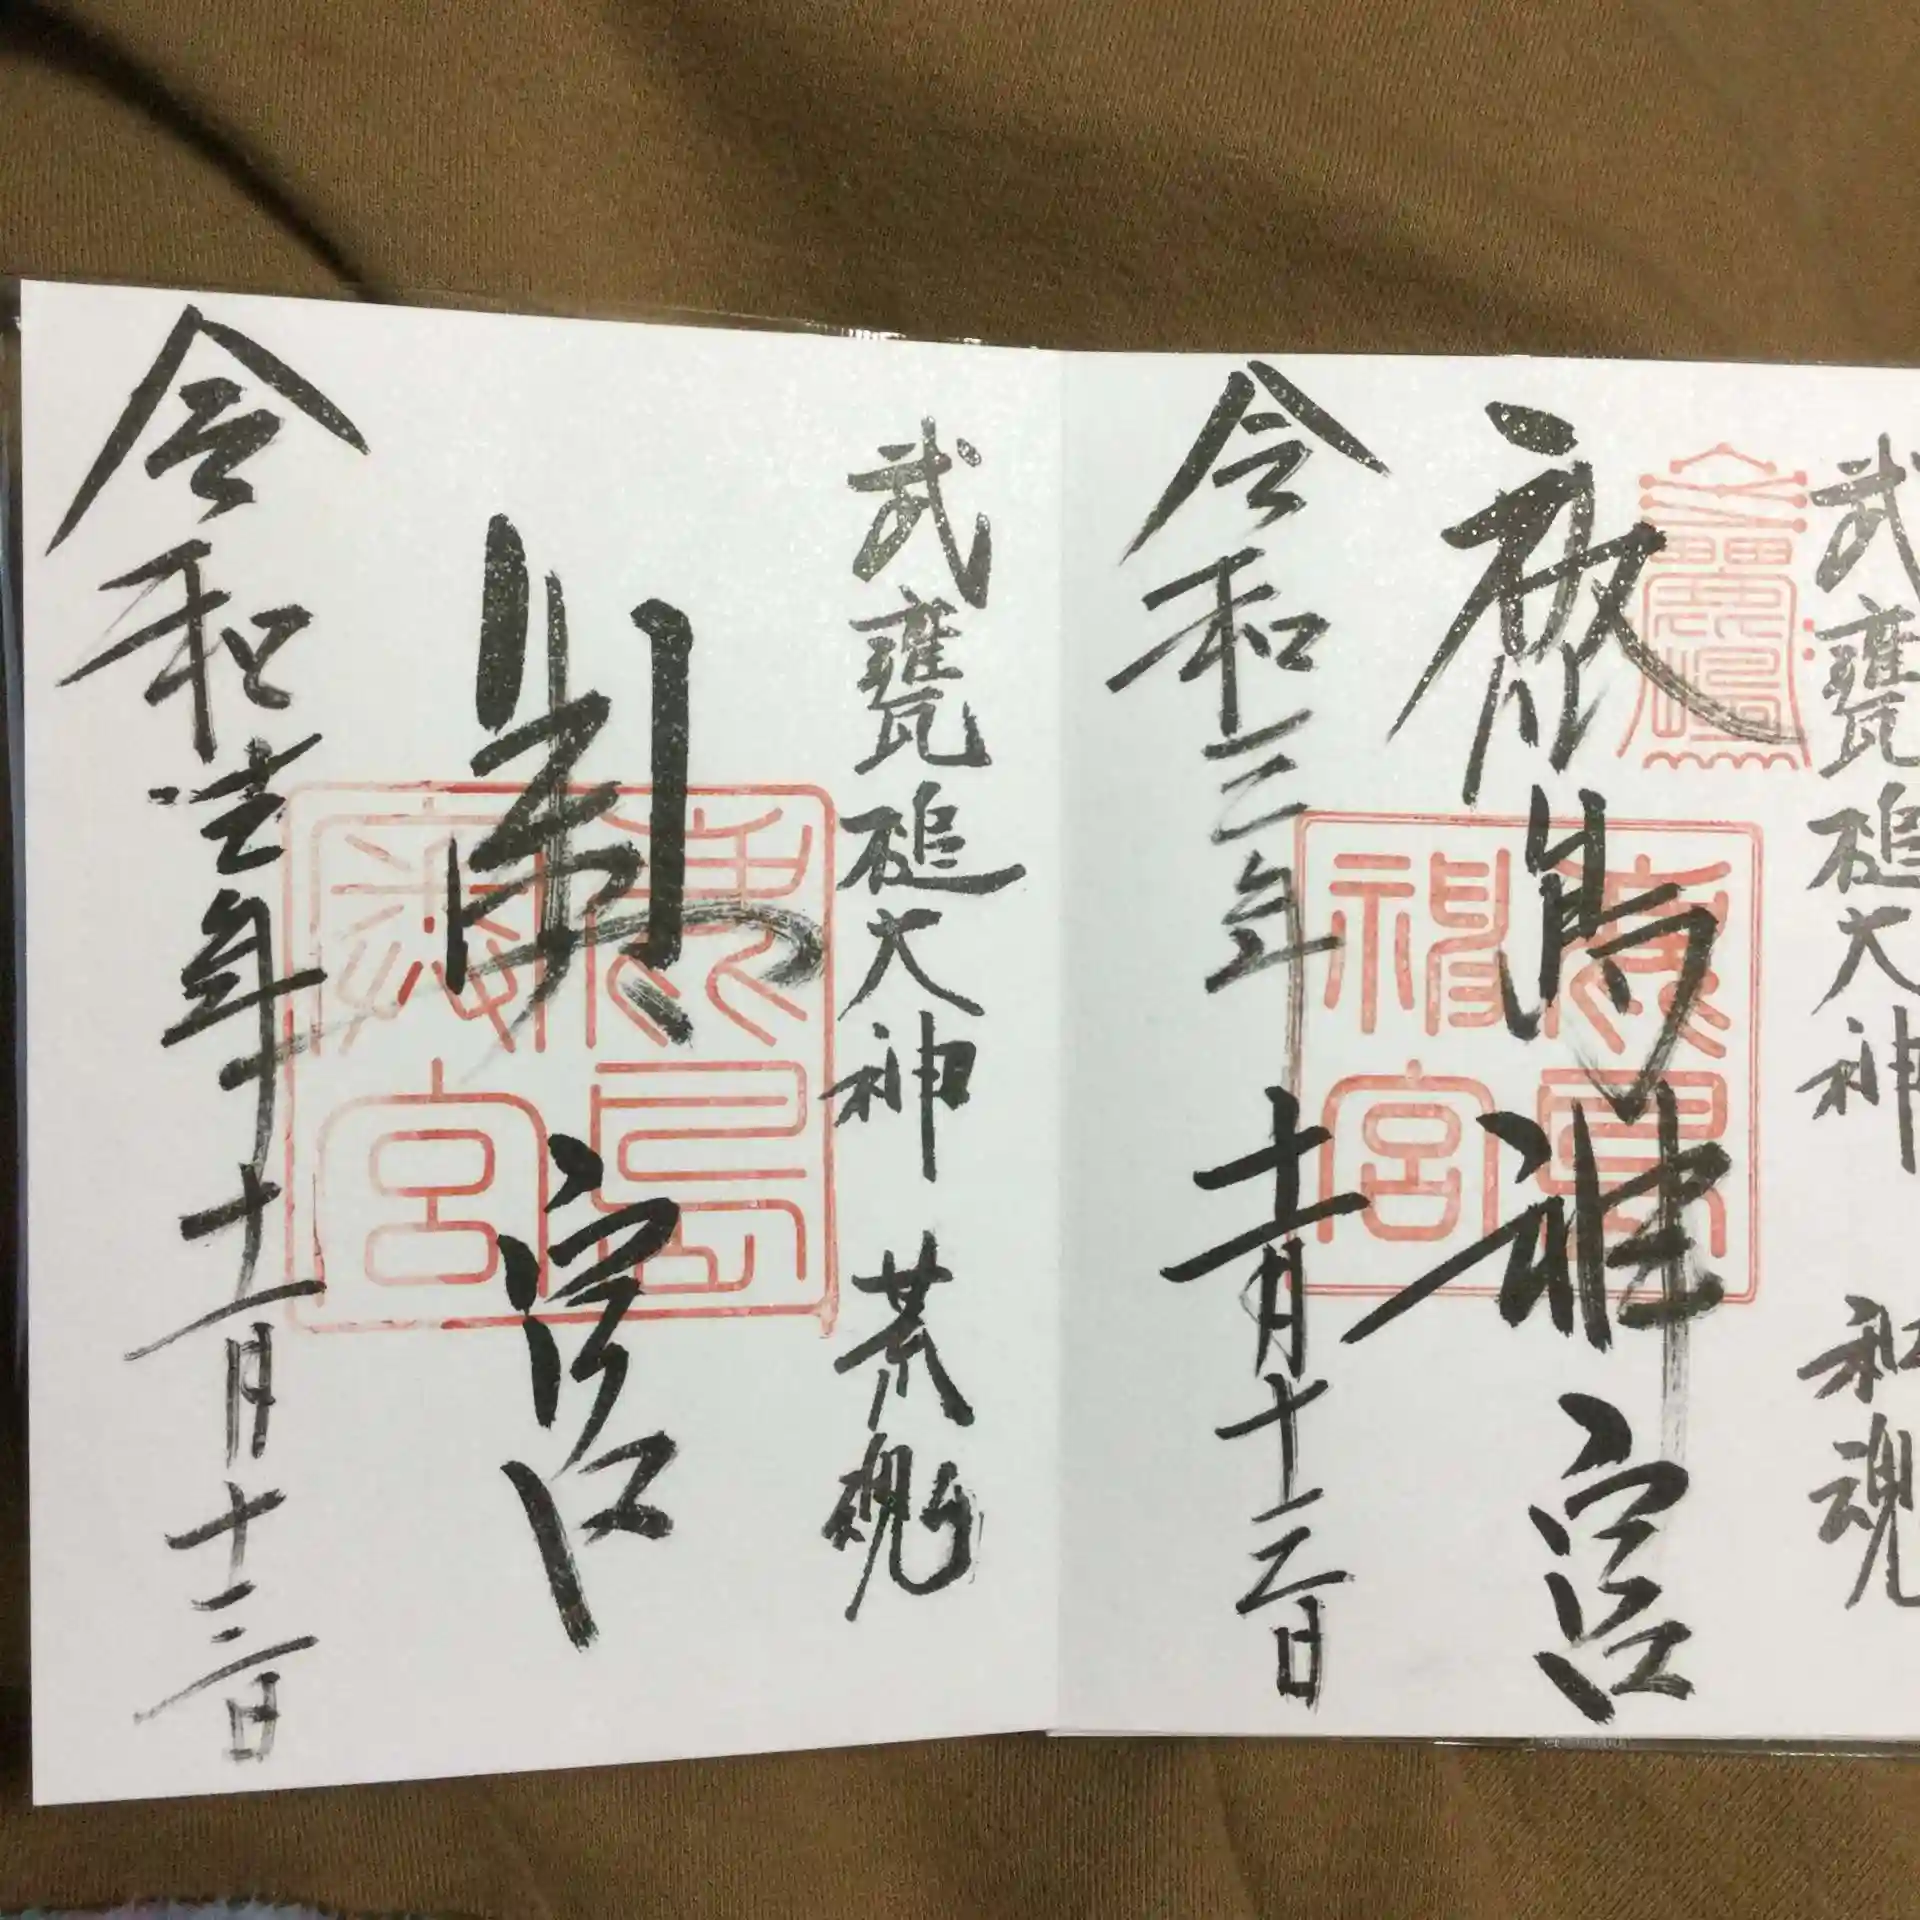 武甕槌大神 和魂
鹿島神宮
令和三年十一月十三日
鹿島
神宮
武甕槌大神 荒魂
奥宮
令和参年十一月十三日
鹿島
奥宮